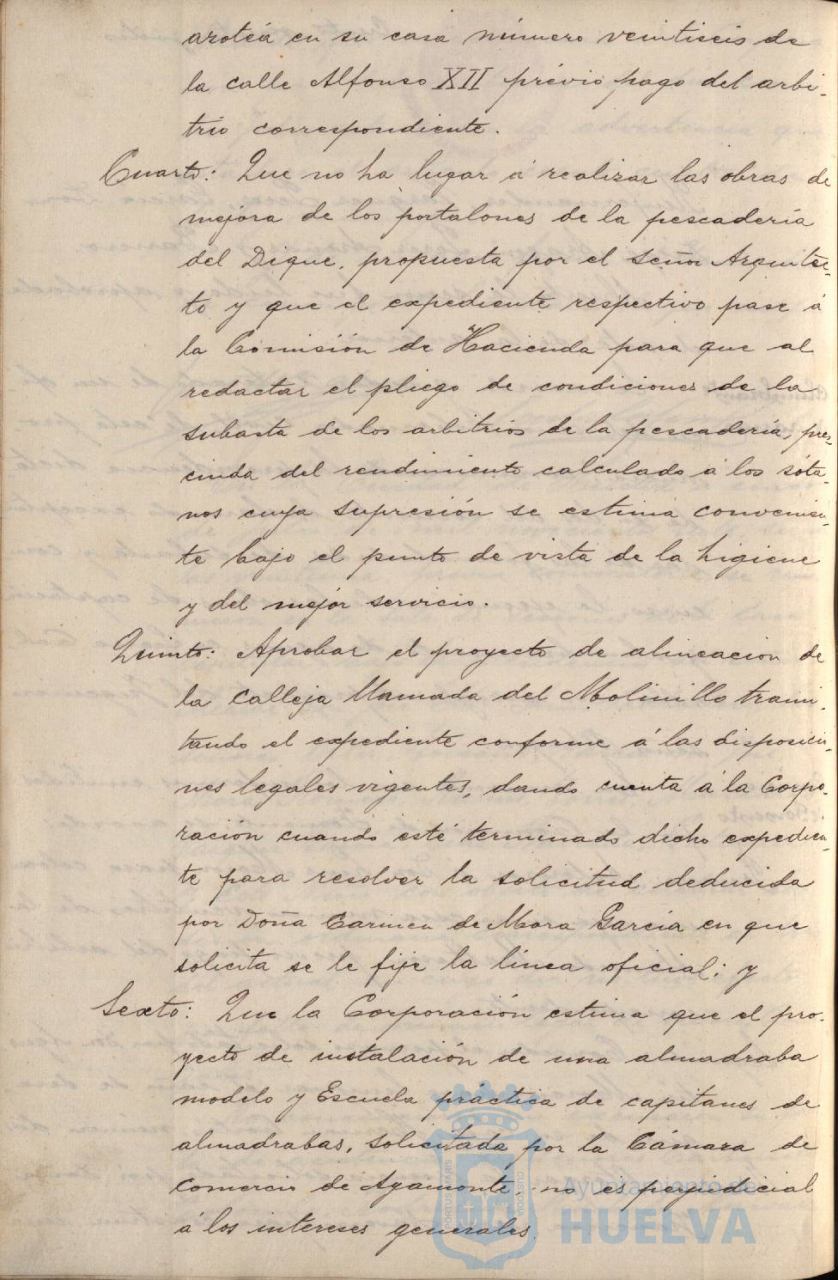 azotéa en su casa número veintiseis de
la calle Alfonso XII prévio pago del arbi-
trio correspondiente.
Cuarto: Que no ha lugar á realizar las obras de
mejora de los portalones de la pescadería
del Dique, propuesta por el señor Arquitec-
to y que el expediente respectivo pase á
la Comisión de Hacienda para que al
redactar el pliego de condiciones de la
subasta de los arbitrios de la pescadería, pres-
cinda del rendimiento calculado á los sóta-
nos cuya supresión se estima convenien-
te bajo el punto de vista de la higiene
y del mejor servicio.
Quinto: Aprobar el proyecto de alineacion de
la calleja llamada del Molinillo trami-
tando el expediente conforme á las disposicio-
nes legales vigentes, dando cuenta á la Corpo-
ración cuando esté terminado dicho expedien-
te para resolver la solicitud deducida
por Doña Carmen de Mora García en que
solicita se le fije la línea oficial; y
Sexto: Que la Corporación estima que el pro-
yecto de instalación de una almadraba
modelo y Escuela práctica de capitanes de
almadrabas, solicitada por la Cámara de
Comercio de Ayamonte no es perjudicial
á los intereses generales.
Ayuntamiento de
HUELVA